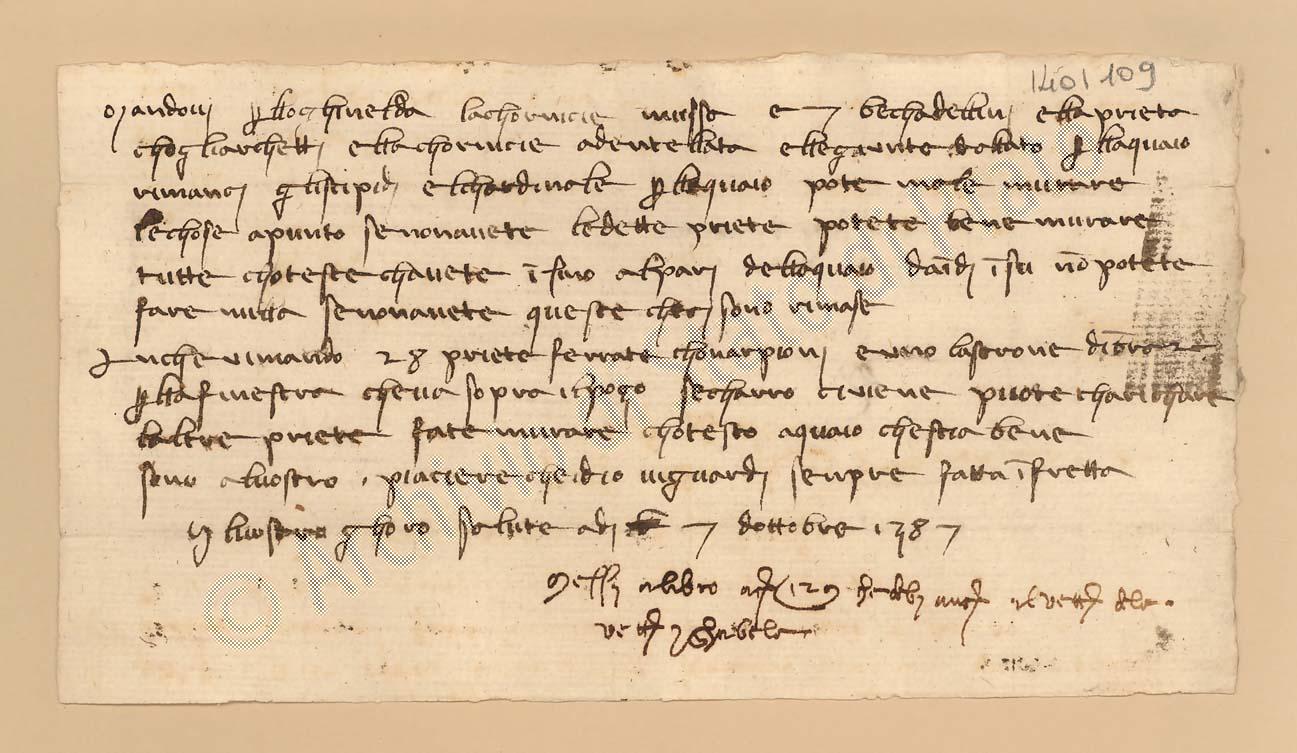 1401109
Mandovi per lo la chornicie messa e 7 bechadellini e lla prieta
chogli archetti e lla chornicie adentellata e llegante dallato per llaquaio
rimanci gli scipidi e lchardinale per llaquaio pote male murare
le chose apunto se nonavete le dette priete potete bene murare
tutte choteste chavete ī fino al pari dellaquaio da īdi ī su nō potete
fare nulla se nonavete queste che ci sono rimase
Anche vi mando 28 priete ferrate chon arpioni e uno lastrone di
per lla finestra che va sopra il pozo se charro ci viene puote charichare
laltre priete fate murare chotesto aquaio che stia bene
sono al vostro piaciere che idio vi guardi senpre fatta ī fretta
ghoro salute adi 7 dottobre 1387
© Archivio di Stato di Prato